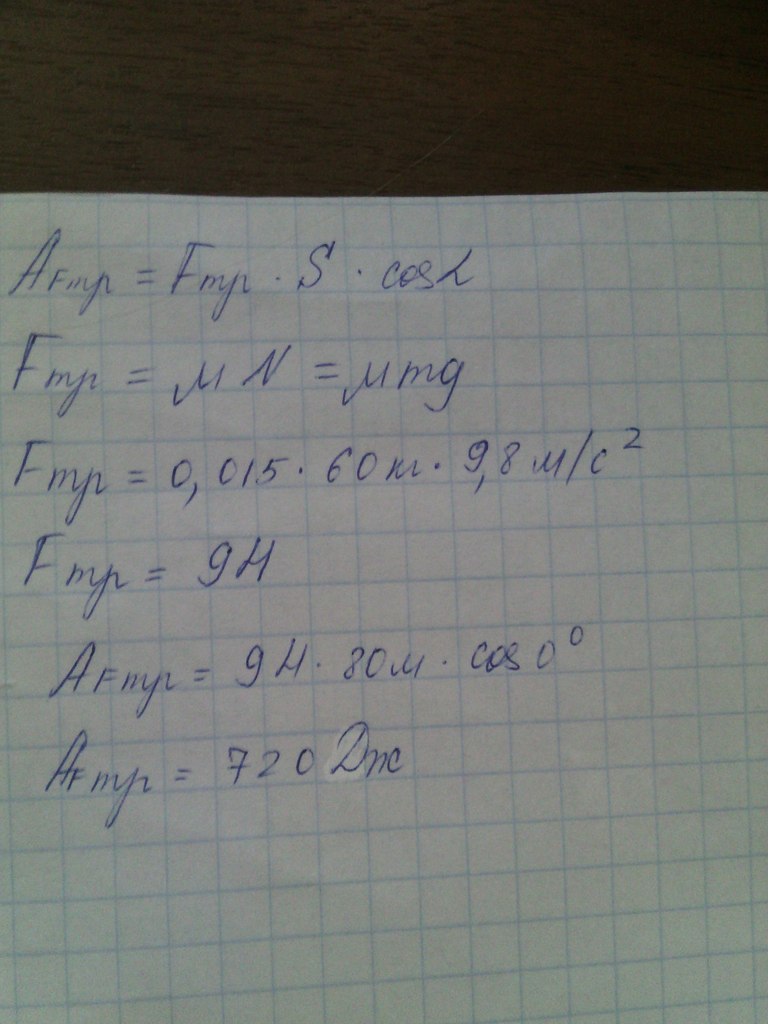 AFтр = Fтр · S · cosα
Fтр = μN = μmg
Fтр = 0,015 · 60кг · 9,8м/с²
Fтр = 9Н
AFтр = 9Н · 80м · cos0⁰
AFтр = 720 Дж